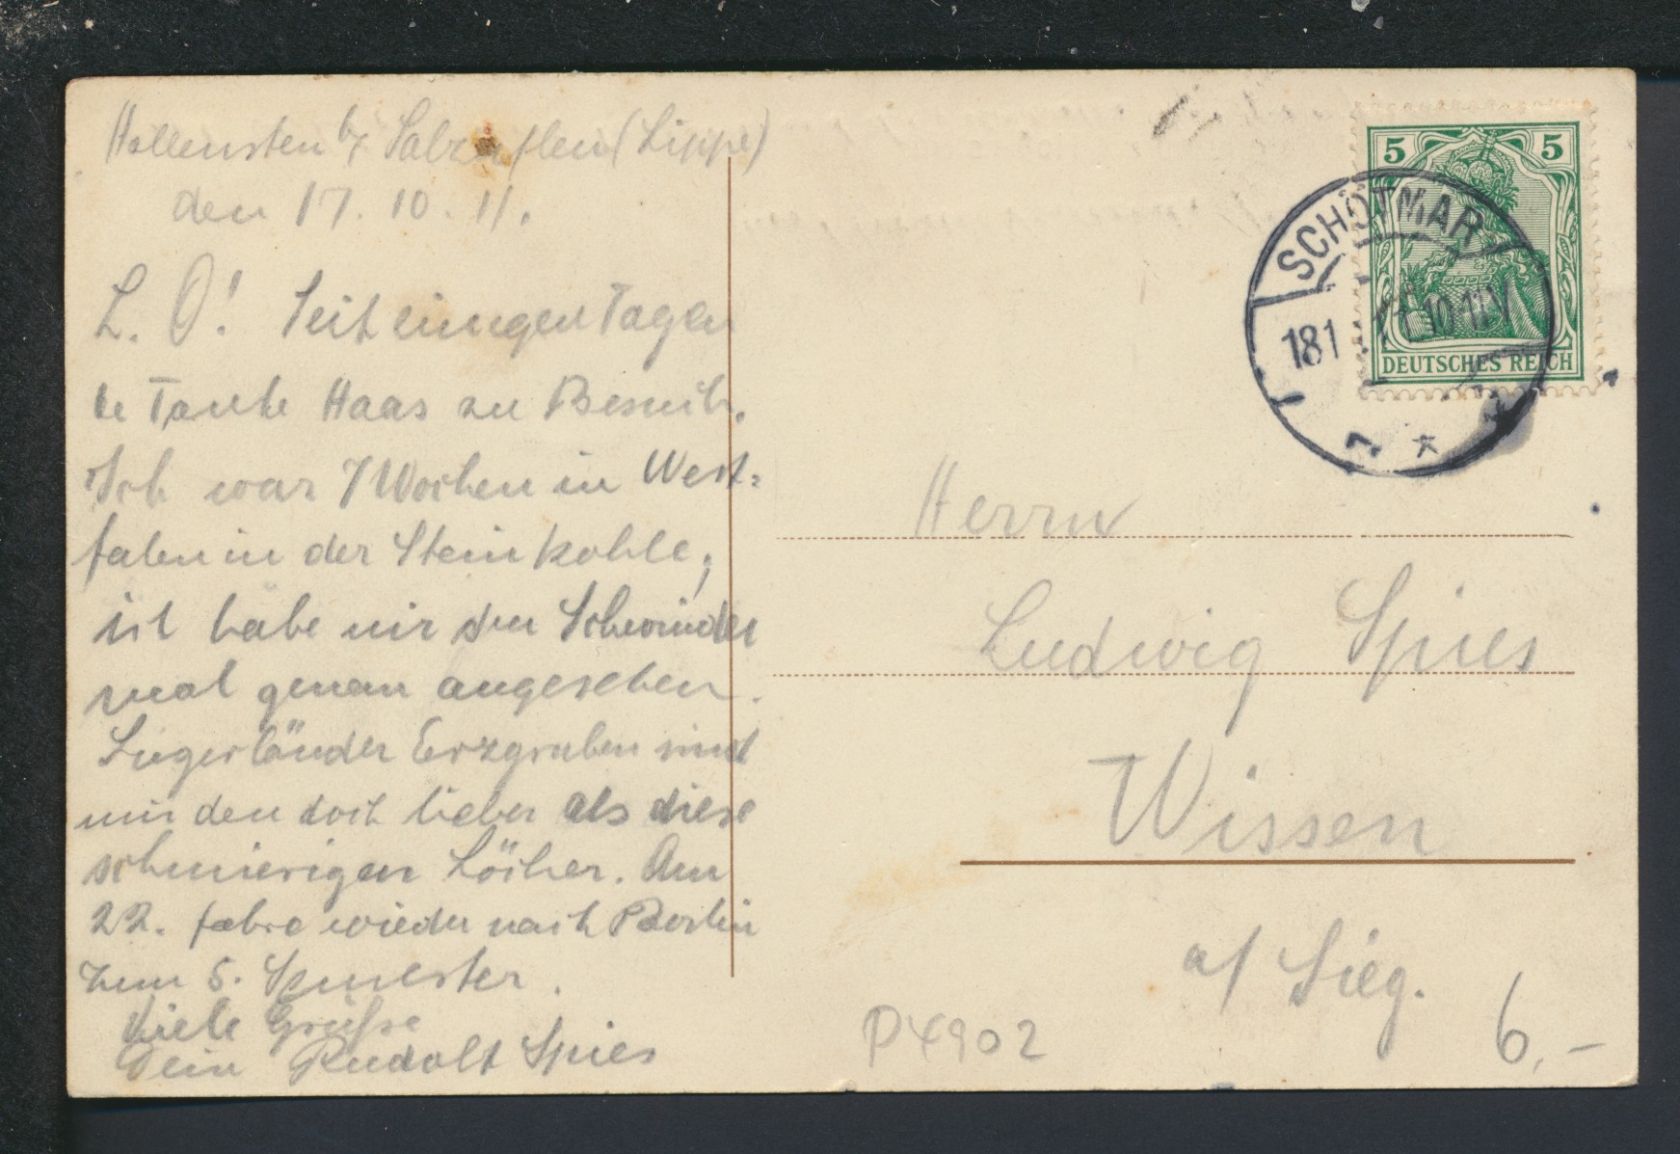 Hollensten b/ Salzuflen (Lippe)
den 17. 10. 11.
L. O! Seit einigen Tagen
Tante Haas zu Besuch.
Ich war 7 Wochen in West=
falen in der Steinkohle,
ich habe mir den Schwindel
mal genau angesehen.
Siegerländer Erzgruben sind
mir den doch lieber als diese
schmierigen Löcher. Am
22. fahre wieder nach Berlin
zum 5. Semester.
Viele Grüße
Dein Rudolf Spies
5 5
DEUTSCHES REICH
SCHÖTMAR
18 10 11 10-11 V
Herrn
Ludwig Spies
Wissen
a/ Sieg.
P4902
6,-